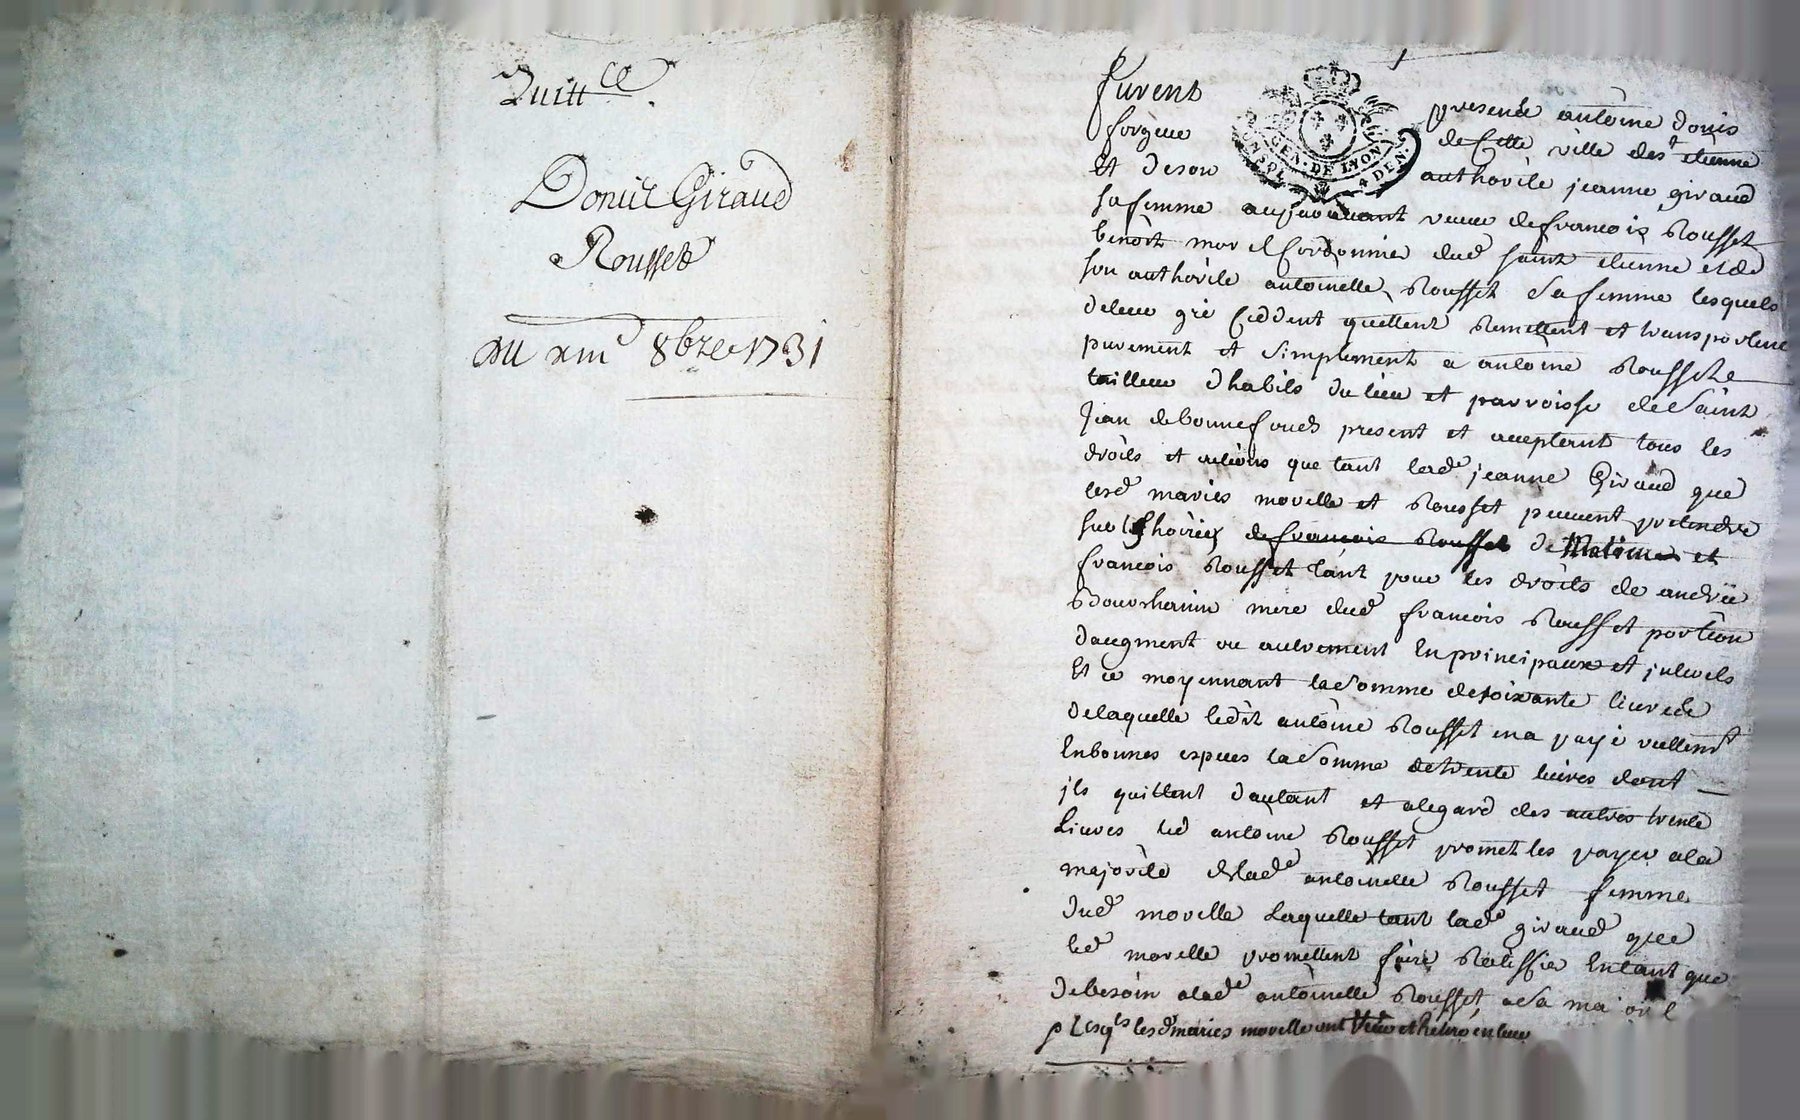 Quitt.ce
Doniil Giraud
Rousset
du xiii 8bre 1731
furent presents antoine donis
forgeur de cette ville de st etienne
et de son authorité jeanne giraud
sa femme auparavant veuve de francois Rousset
benoit morel Cordonnier dud saint etienne et de
son authorité antoinette Rousset sa femme lesquels
de leur gré Ceddent quittent Remettent et transportent
purement et simplement a antoine Roussette
tailleur dhabits du lieu et parroisse de saint
jean de bonnefonds present et acceptant tous les
droits et actions que tant lade jeanne Giraud que
lesd mariés morelle et Rousset peuvent pretendre
sur les hoiries de francois Rousset de et
francois Rousset tant pour les droits de andrée
mere dud francois Rousset portion
daugment ou autrement En principaux et
Et ce moyennant la somme de soixante livres de
de laquelle ledit antoine Rousset en a payé reellemt
En bonnes especes la somme de trente livres dont
ils quittent dautant et alegard des autres trente
Livres led antoine Rousset promet les payer a la
majorité de lade antoinette Rousset femme
dud morelle Laquelle tant lade giraud que
led morelle promettent faire Ratiffier En tant que
de besoin a lade antoinette Rousset a sa
p lesqls lesd mariés morelle ont et en leur
GEN. DE LYON
4 DEN.